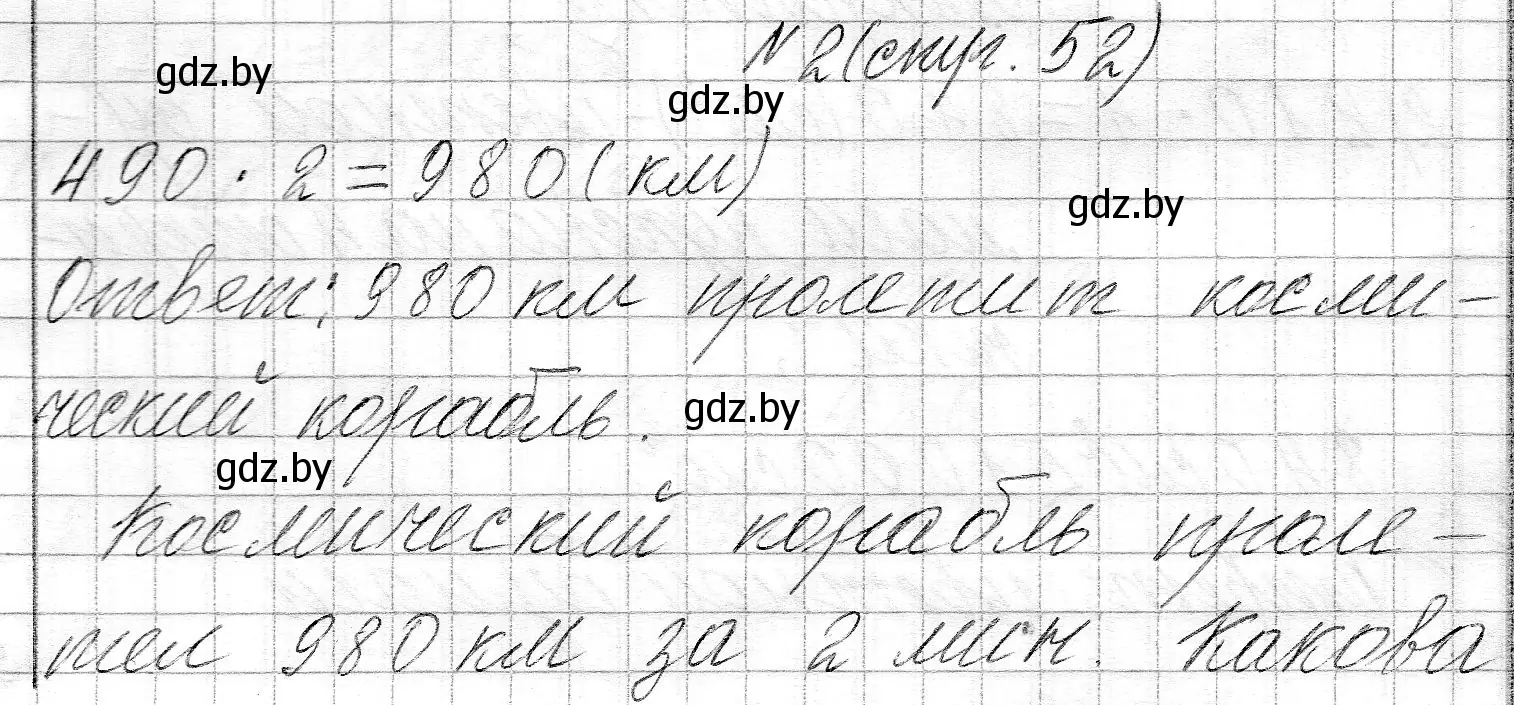 N 2 (стр. 52)
gdz.by
gdz.by
490 · 2 = 980 (км)
gdz.by
Ответ: 980 км пролетит косми-
ческий корабль.
gdz.by
gdz.by
Космический корабль проле-
тел 980 км за 2 мин. Какова